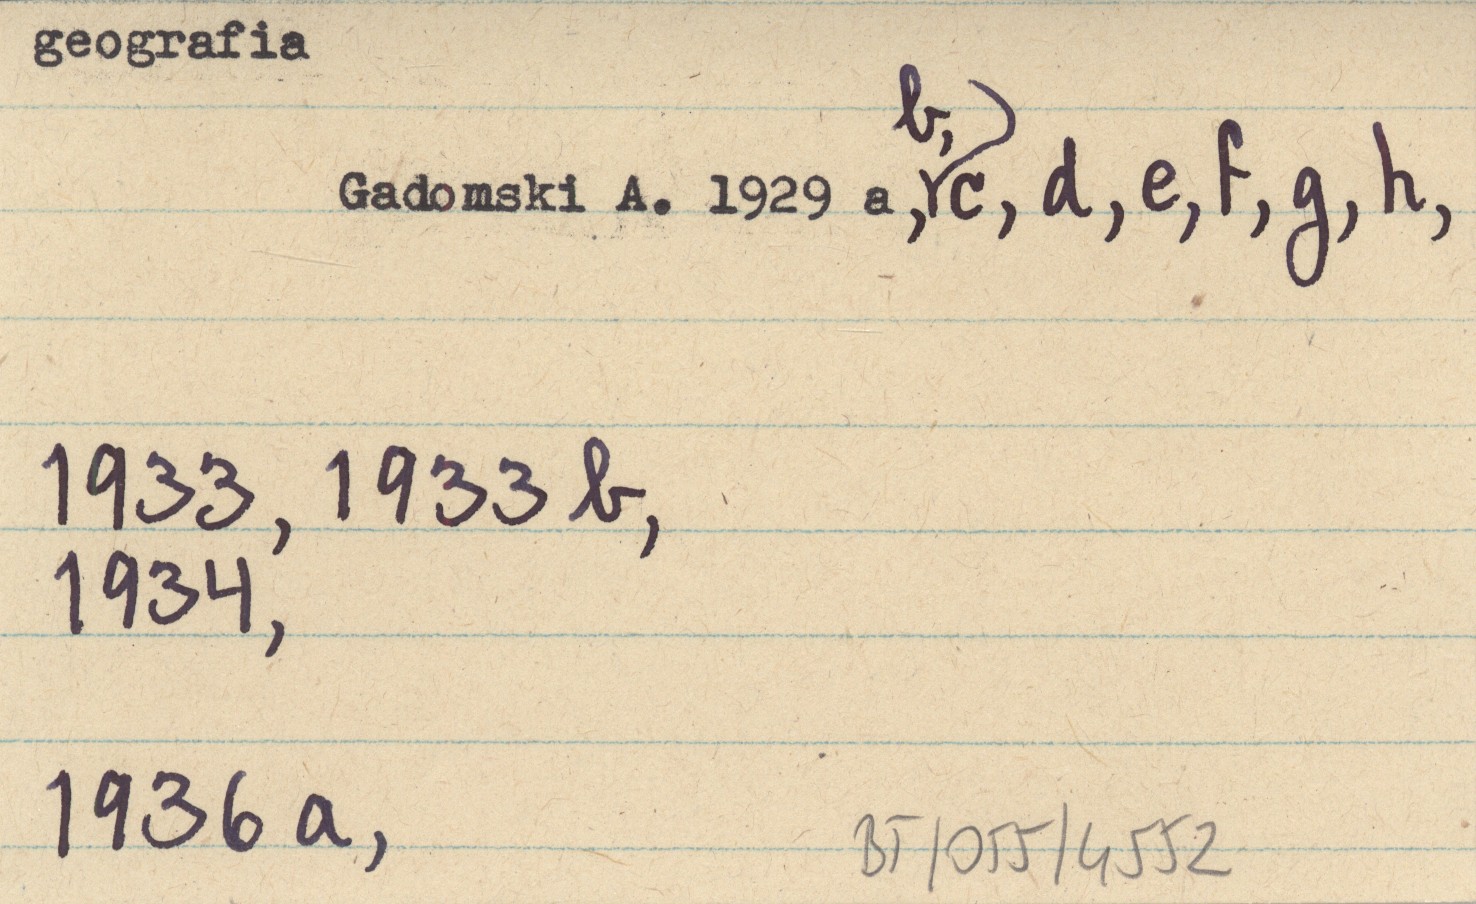 geografia
Gadomski A. 1929 a, b, c, d, e, f, g, h,
1933, 1933 b,
1934,
1936 a,
BT/055/4552